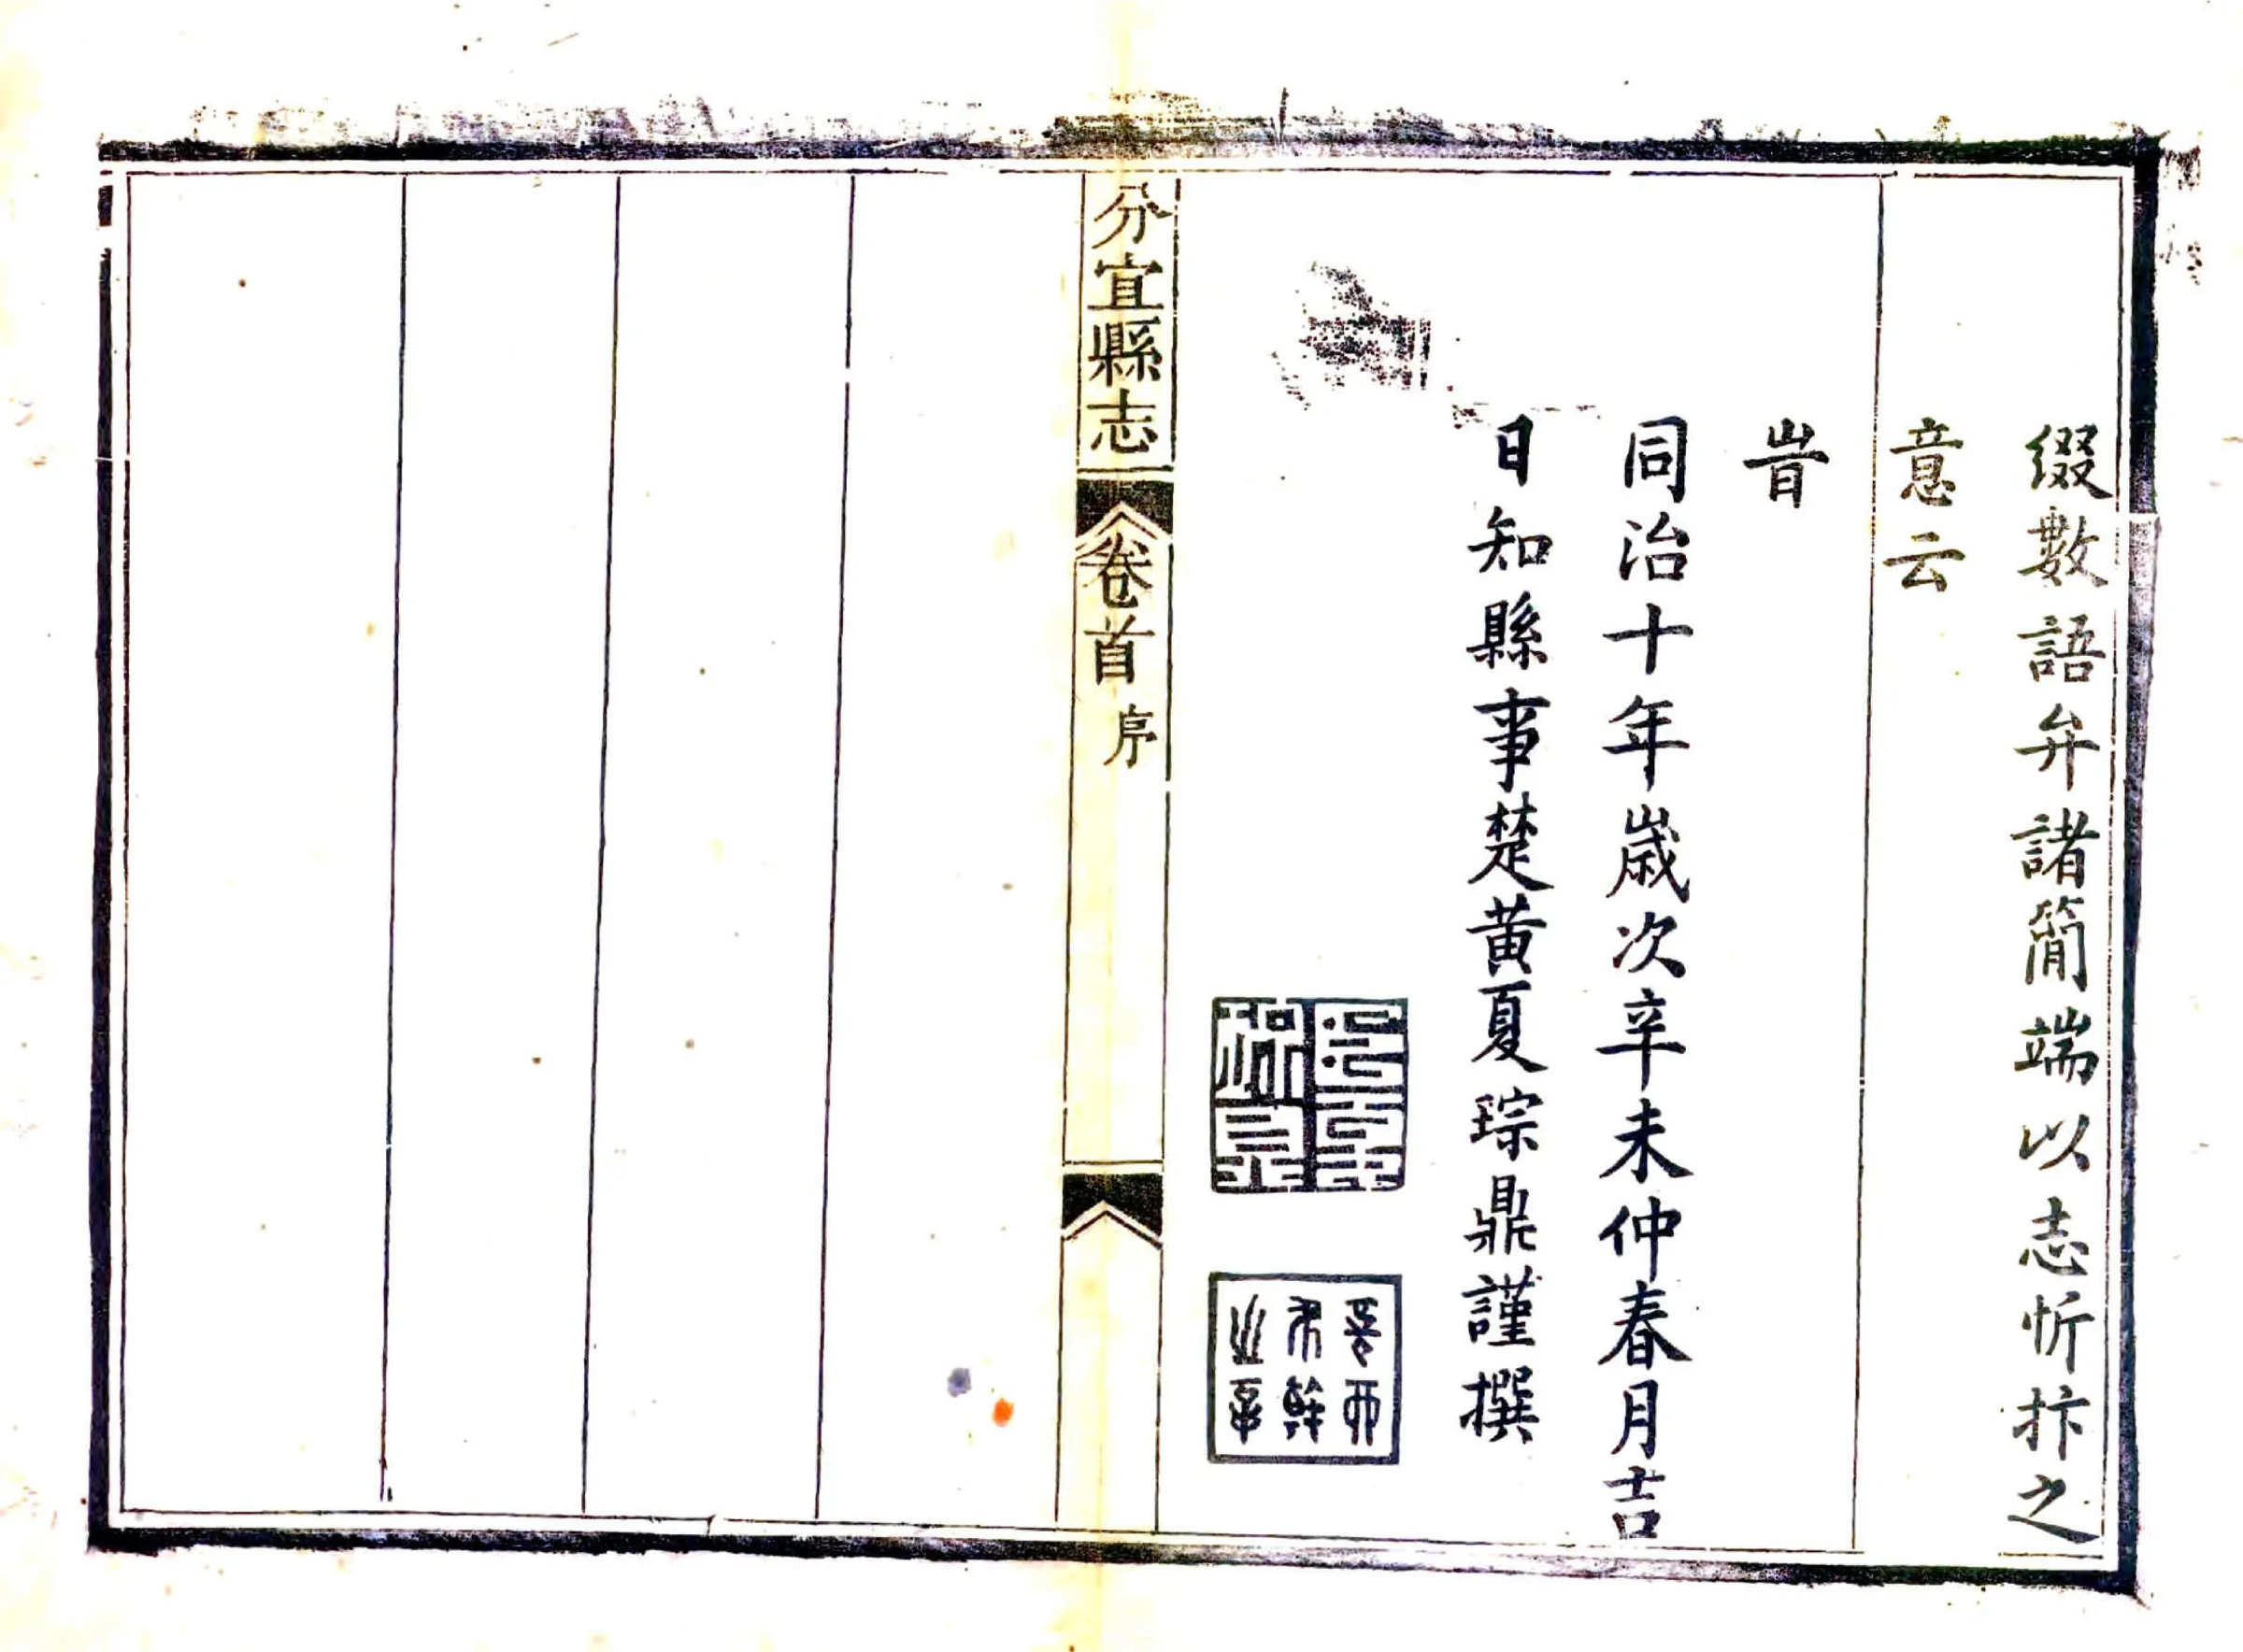 綴數語弁諸簡端以志忻抃之
意云
旹
同治十年歲次辛未仲春月吉
日知縣事楚黃夏琮鼎謹撰
分宜縣志 卷首 序